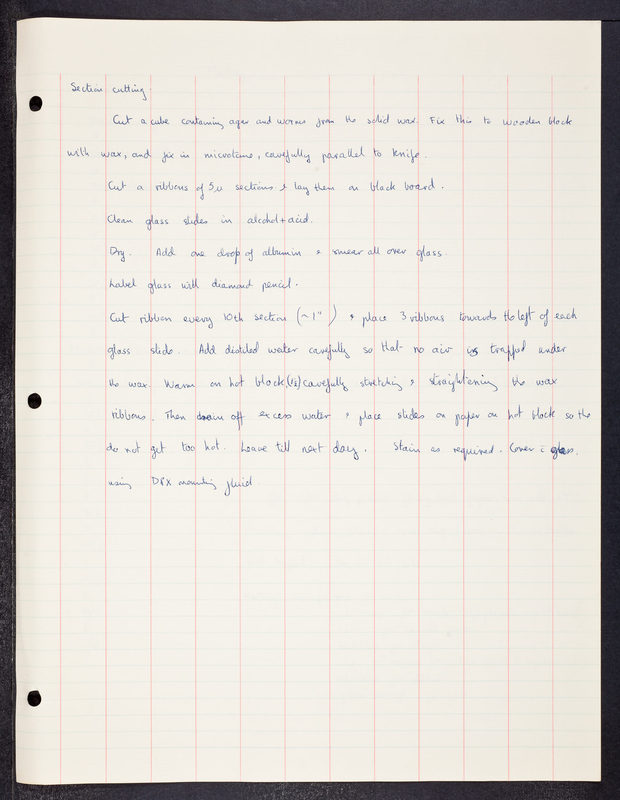 Section cutting
Cut a cube containing agar and worms from the solid wax. Fix this to wooden block
with wax, and fix in microtome, carefully parallel to knife.
Cut a ribbons of 5µ sections & lay them on black board.
Clean glass slides in alcohol + acid.
Dry. Add one drop of albumin & smear all over glass.
Label glass with diamond pencil.
Cut ribbon every 10th section (~1") & place 3 ribbons towards the left of each
glass slide. Add distilled water carefully so that no air is trapped under
the wax. Warm on hot block (½) carefully stretching & straightening the wax
ribbons. Then drain off excess water & place slides on paper on hot block so the
do not get too hot. Leave till next day. Stain as required. Cover c̄ glass.
using DPX mounting fluid.